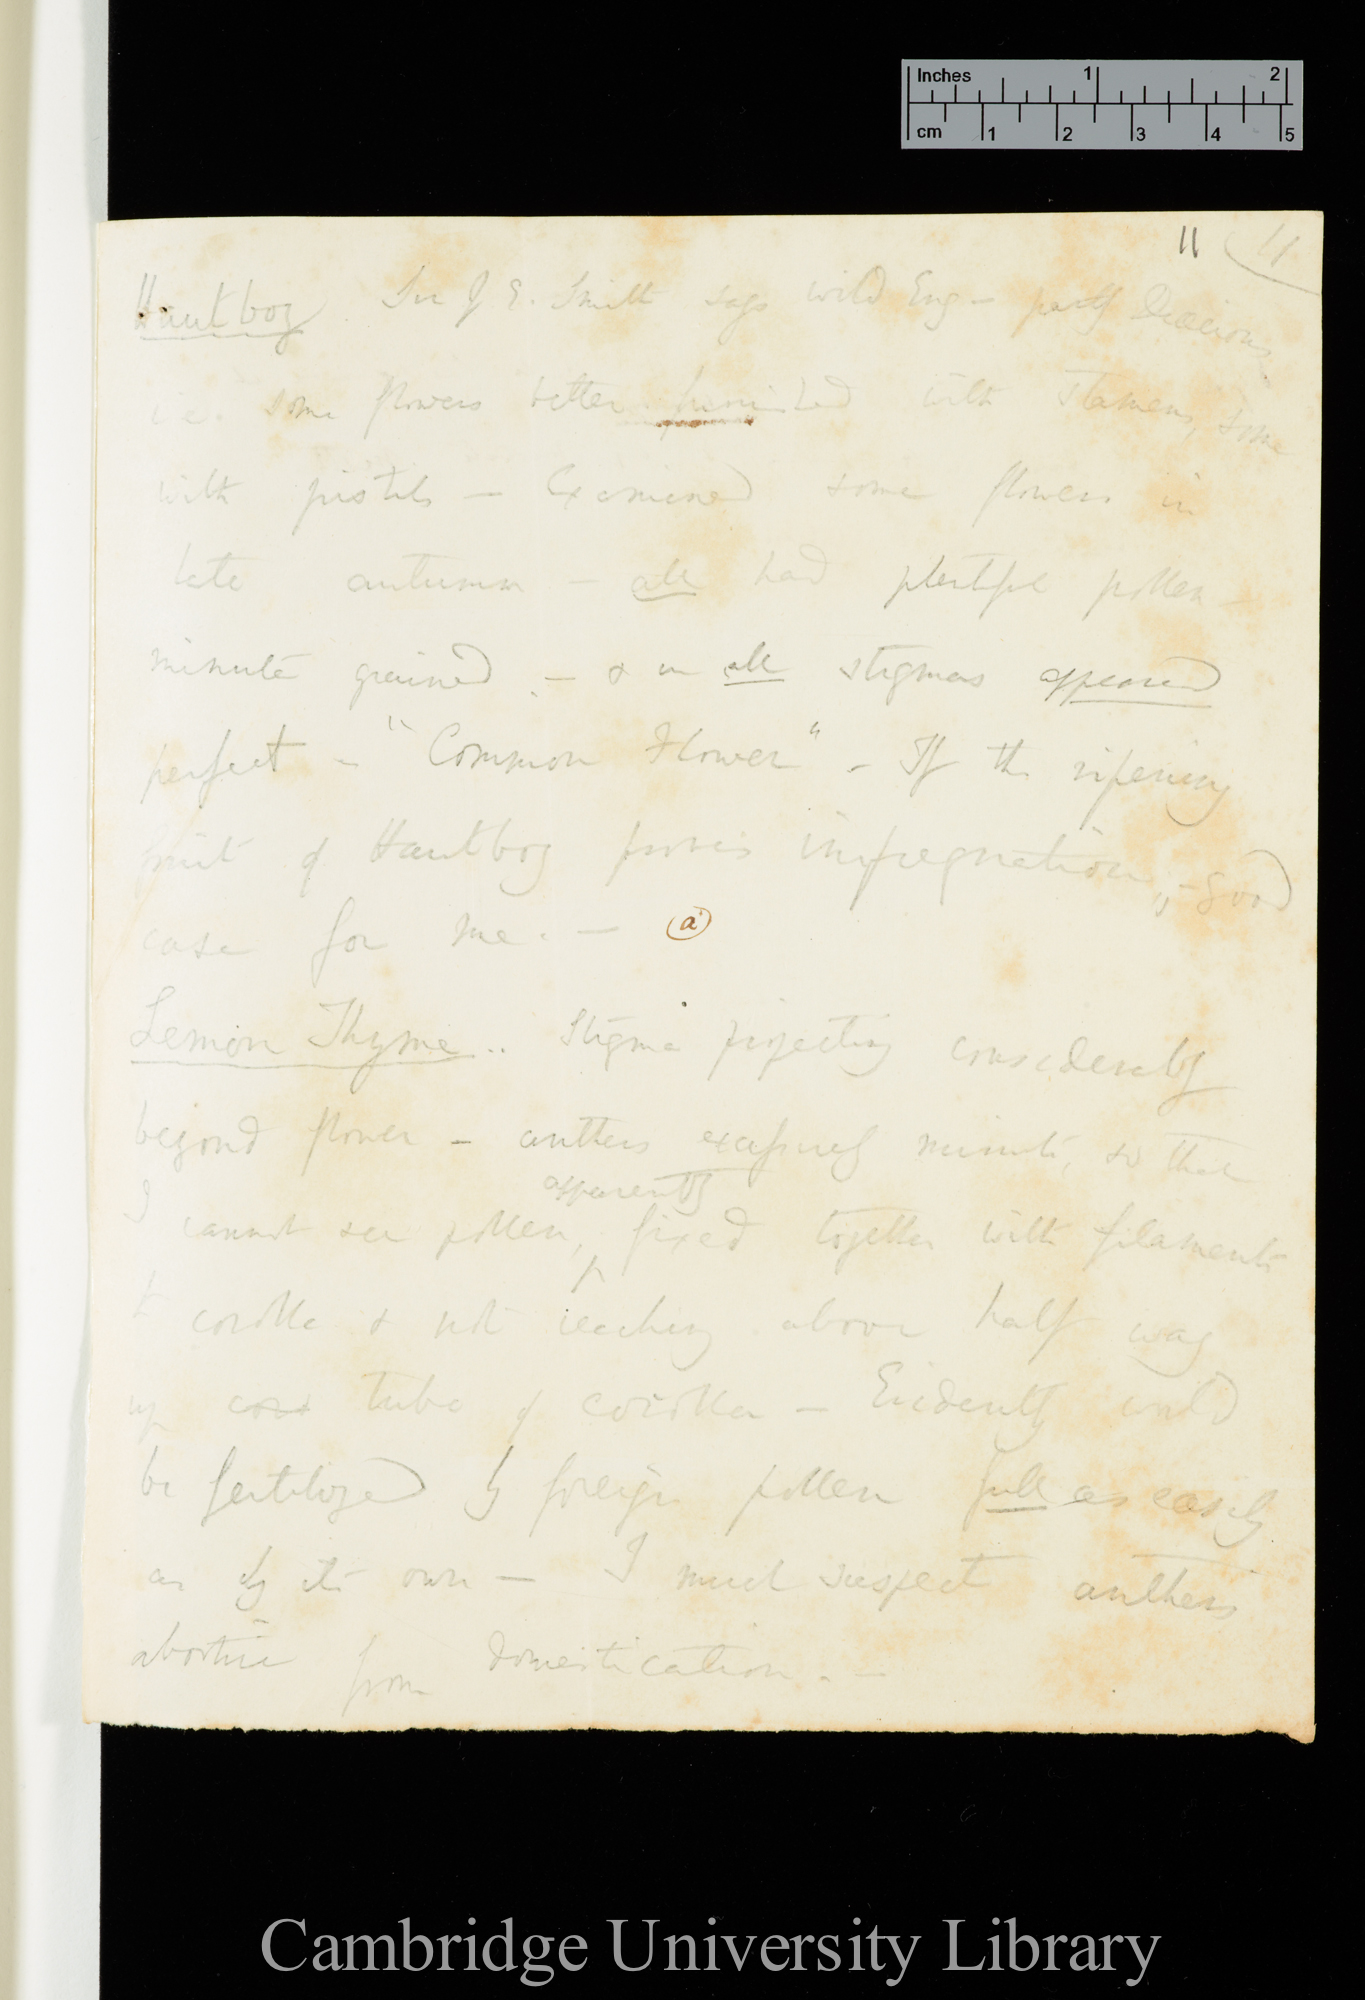 Inches 1 2
cm 1 2 3 4 5
11 11
Hautboy Sir J. E. Smith says wild Eng - partly Diœcious
i.e. some flowers better furnished with stamens, some
with pistils — Examined some flowers in
late autumn — all had plentiful pollen —
minute grained. — & in all stigmas appeared
perfect — "Common Flower" — If the ripening
fruit of Hautboy proves impregnation, — good
case for me. — (a)
Lemon Thyme.. Stigma projecting considerably
beyond flower — anthers exceedingly minute, so that
apparently
I cannot see pollen, fixed together with filaments
to corolla & not reaching above half way
up tube of corolla — Evidently would
be fertilized by foreign pollen full as easily
as by its own — I much suspect anthers
abortive from domestication. —
Cambridge University Library